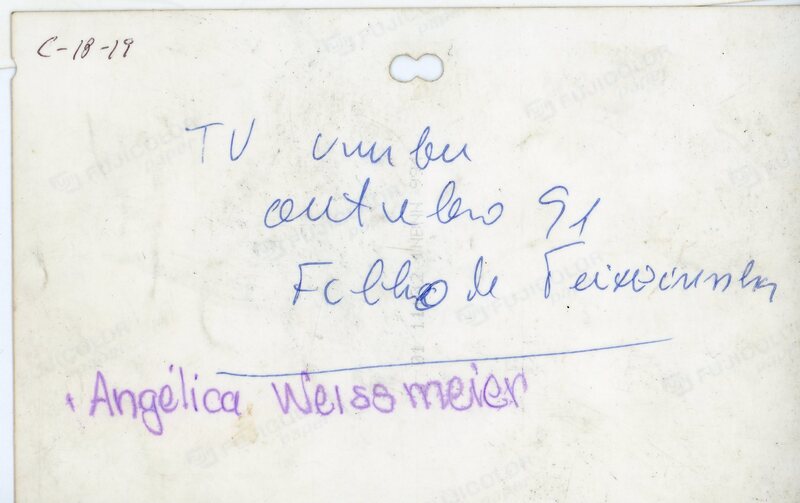 C-18-19
TV umbu
outubro 91
Filho de Teixeirinha
Angélica Weissmeier
FUJICOLOR
paper